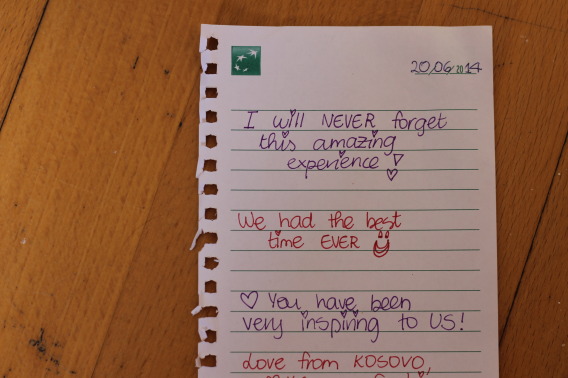 20/06/2014
I will NEVER forget
this amazing
experience!
We had the best
time EVER
You have been
very inspiring to US!
Love from KOSOVO,